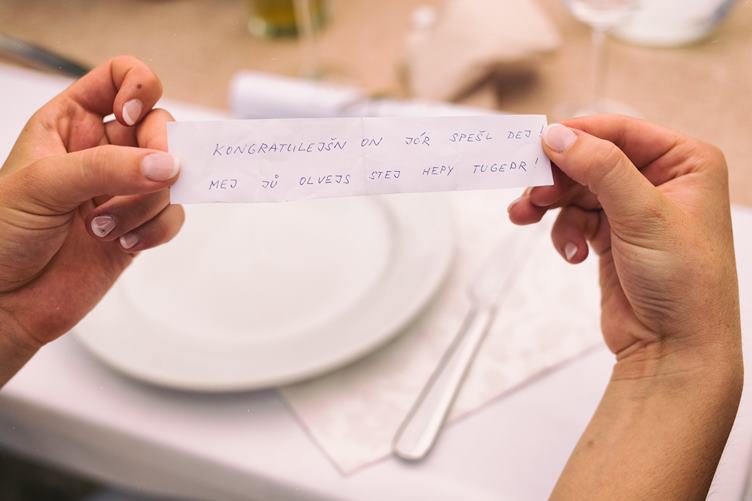 KONGRATULEJŠN ON JÓR SPEŠL DEJ!
MEJ JŮ OLVEJS STEJ HEPY TUGEDR!